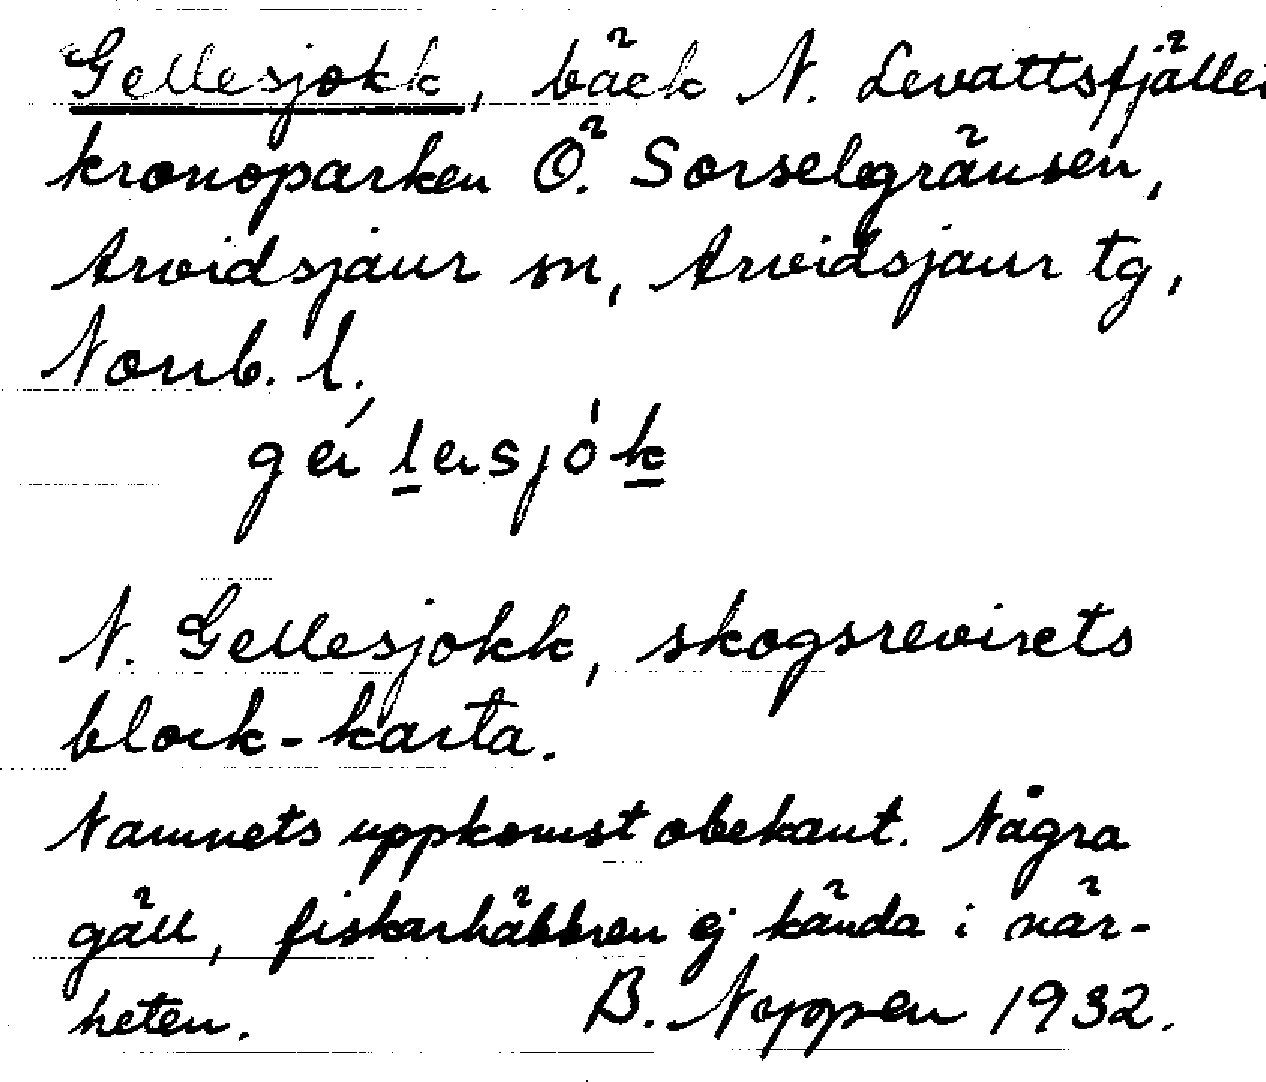 Gellesjokk, bäck N. Levattsfjället
kronoparken Ö. Sorselegränsen,
Arvidsjaur sn, Arvidsjaur tg,
Norrb. l.
N. Gellesjokk, skogsrevirets
block-karta.
Namnets uppkomst obekant. Några
gäll, fiskarhäbbren ej kända i när-
heten. B. Noppen 1932.